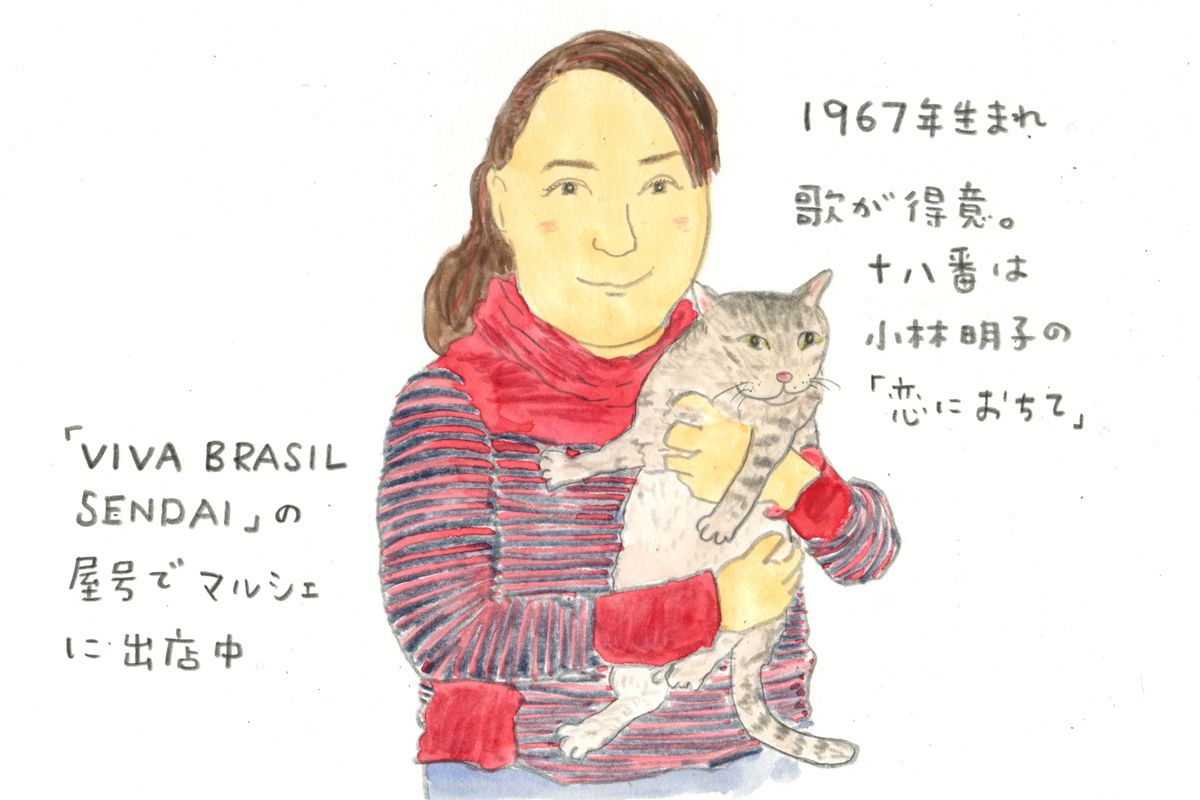 1967年生まれ
歌が得意。
十八番は
小林明子の
「恋におちて」
「VIVA BRASIL
SENDAI」の
屋号でマルシェ
に出店中